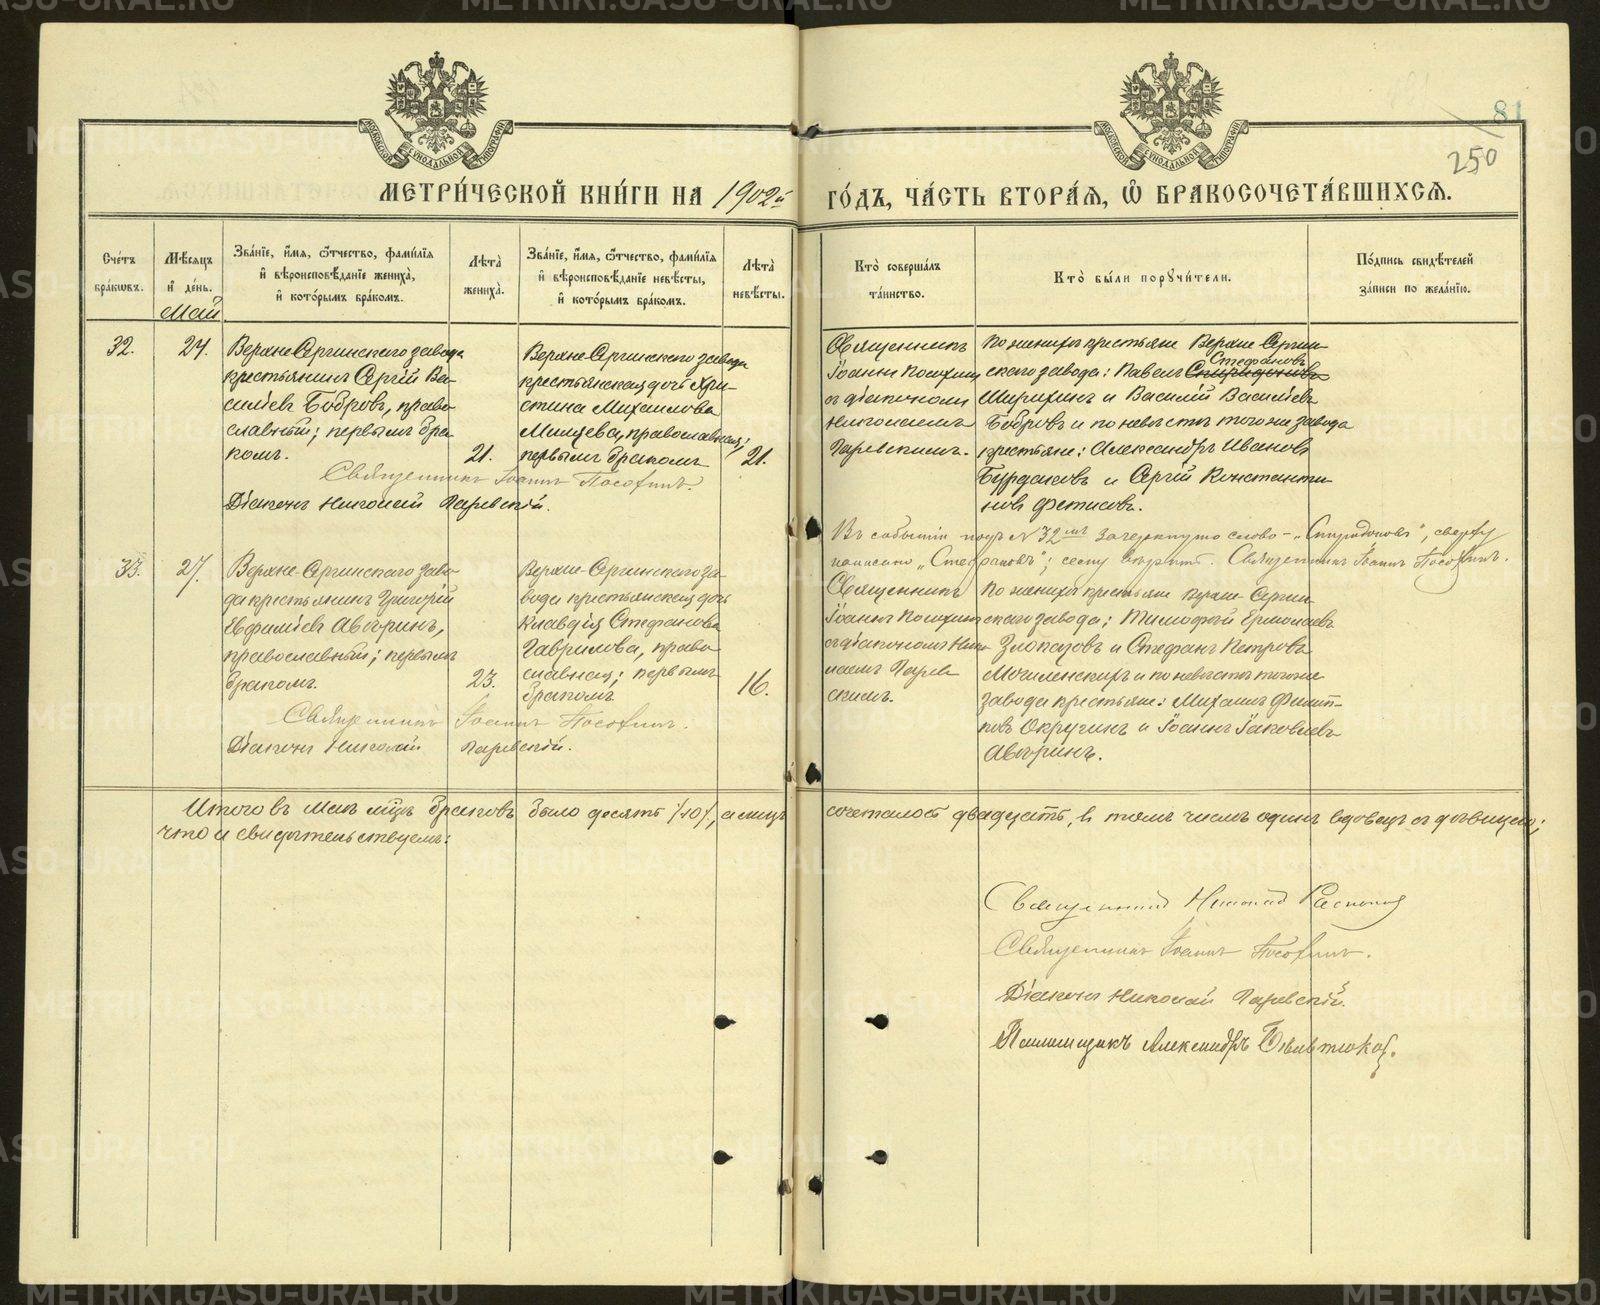 81
250
МЕТРИ́ЧЕСКОЙ КНИ́ГИ НА 1902й ГО́ДЪ, ЧА́СТЬ ВТОРА́Я, Ѡ҆ БРАКОСОЧЕТА́ВШИХСѦ.
Сче́тъ бра́кѡвъ.
Мѣ́сѧцъ и҆ де́нь.
Май
Зва́нїе, и҆́мѧ, ѻ҆́тчество, фами́лїѧ и҆ вѣроисповѣ́данїе жениха̀, и҆ кото́рымъ бра́комъ.
Лѣ́та жениха̀.
Зва́нїе, и҆́мѧ, ѻ҆́тчество, фами́лїѧ и҆ вѣроисповѣ́данїе невѣ́сты, и҆ кото́рымъ бра́комъ.
Лѣ́та невѣ́сты.
Кто̀ соверша́лъ та́инство.
Кто̀ бы́ли порꙋчи́тели.
По́дпись свидѣ́телей за́писи по жела́нїю.
32.
24.
Верхне-Сергинскаго завода
крестьянинъ Сергій Ва-
сильевъ Бобровъ, право-
славный; первымъ бра-
комъ.
21.
Верхне-Сергинскаго завода
крестьянская дочь Хри-
стина Михаилова
православная;
первымъ бракомъ
21.
Священникъ
Іоаннъ Посохинъ
съ діакономъ
Николаемъ
По женихѣ крестьяне Верхне-Сергин-
Стефановъ
скаго завода: Павелъ Спиридоновъ
Ширихинъ и Василій Васильевъ
Бобровъ и по невѣстѣ того же завода
крестьяне: Александръ Ивановъ
Бурдаковъ и Сергій Константи-
новъ Фетисовъ.
Священникъ Іоаннъ Посохинъ.
Діаконъ Николай
Въ событіи подъ № 32мъ зачеркнуто слово - „Спиридоновъ", сверху
написано „Стефановъ"; сему вѣрить. Священникъ Іоаннъ Посохинъ.
33.
27.
Верхне-Сергинскаго заво-
да крестьянинъ Григорій
Евфиміевъ Авѣринъ,
православный; первымъ
бракомъ.
23.
Верхне-Сергинскаго за-
вода крестьянская дочь
Клавдія Стефанова
Гаврилова, право-
славная; первымъ
бракомъ.
16.
Священникъ
Іоаннъ Посохинъ
съ діакономъ Нико-
лаемъ
По женихѣ крестьяне Верхне-Сергин-
скаго завода: Тимофей Ермолаевъ
Злоказовъ и Стефанъ Петровъ
и по невѣстѣ того же
завода крестьяне: Михаилъ Филип-
повъ Окручинъ и Іоаннъ Іаковлевъ
Авѣринъ.
Священникъ Іоаннъ Посохинъ.
Діаконъ Николай
Итого въ маѣ мцѣ браковъ было десять /10/, а лицъ сочеталось двадцать, въ томъ числѣ одинъ вдовецъ съ дѣвицею;
что и свидѣтельствуемъ:
Священникъ Николай
Священникъ Іоаннъ Посохинъ.
Діаконъ Николай
Псаломщикъ Александръ
METRIKI.GASO-URAL.RU